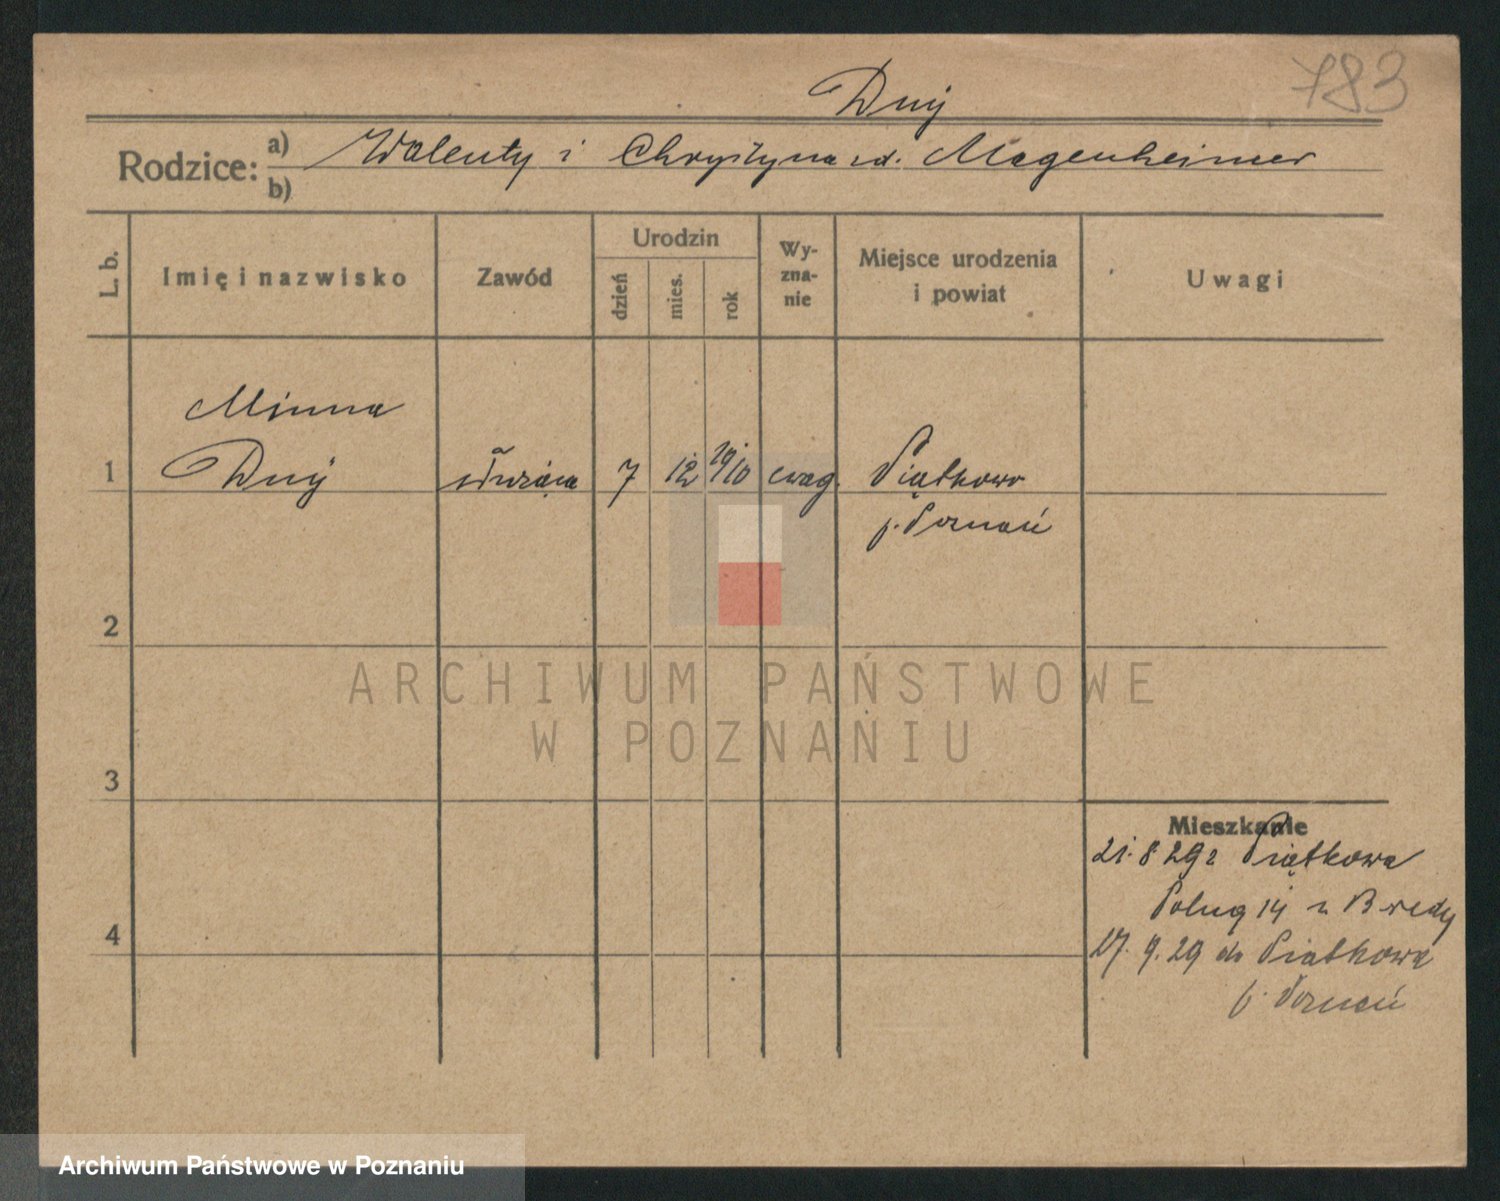 783
Duij
Rodzice: a) Walenty i Chrystyna zd. Magenheimer
b)
L. b.
Imię i nazwisko
Zawód
Urodzin
dzień
mies.
rok
Wy-
zna-
nie
Miejsce urodzenia
i powiat
Uwagi
Minna
1 Duij służąca 7 12 1910 ewag. Piątkowo
p. Poznań
2
3
4
Mieszkanie
21. 8. 29 z Piątkowa
14 u
17. 9. 29 do Piątkowa
p. Poznań
ARCHIWUM PAŃSTWOWE
W POZNANIU
Archiwum Państwowe w Poznaniu